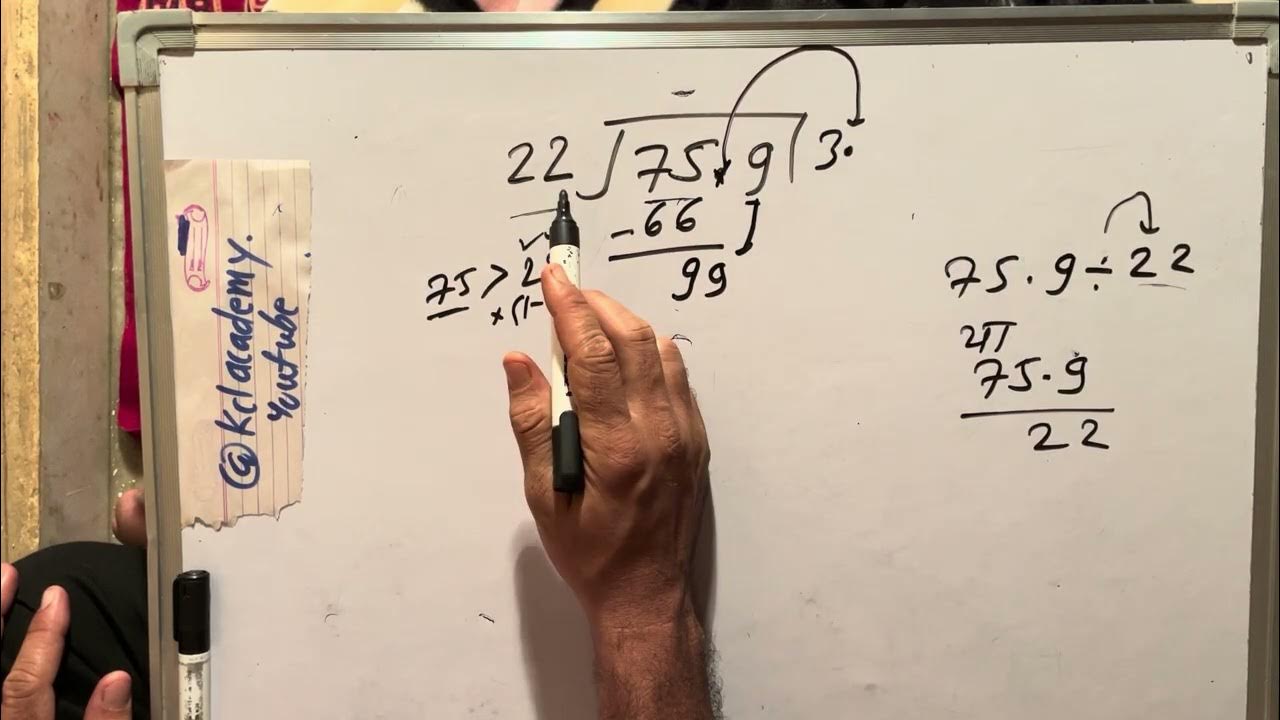 22 ) 75.9 ( 3.
- 66
99
75 > 2
75.9 ÷ 22
75.9
22
@Kclacademy.
Youtube